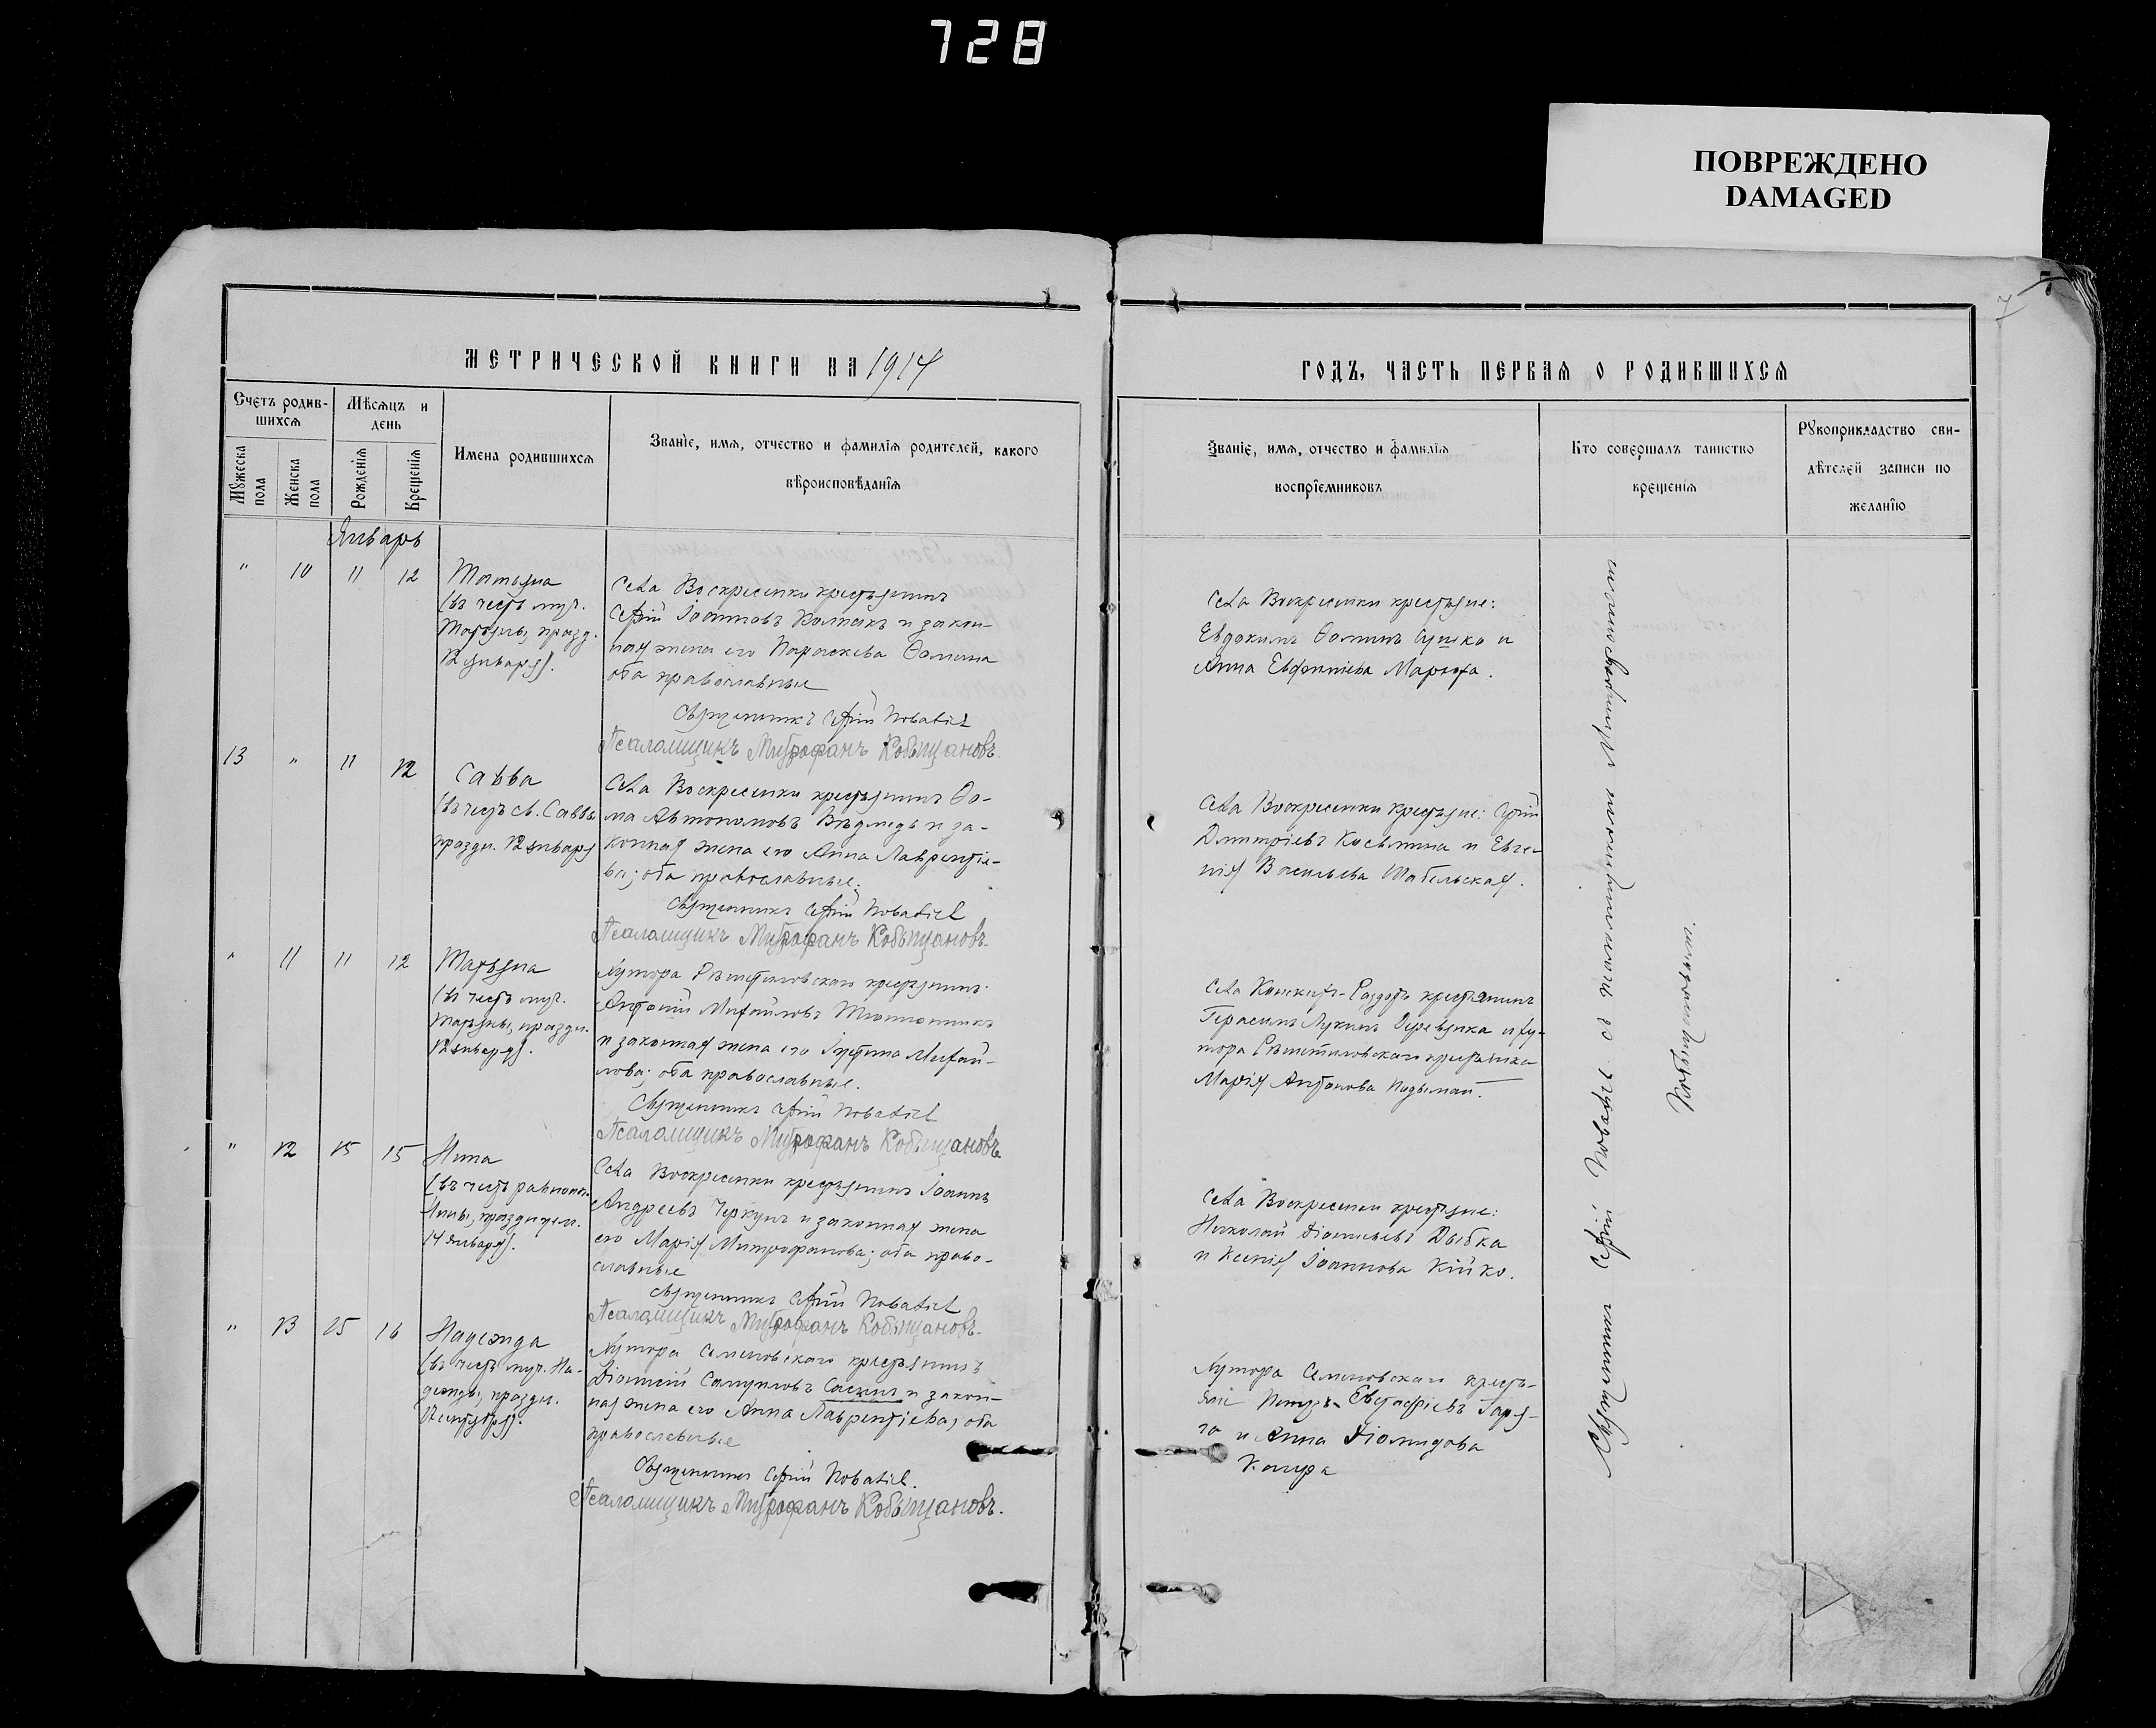 728
ПОВРЕЖДЕНО
DAMAGED
7
7
МЕТРИЧЕСКОЙ КНИГИ НА 1914
Счетъ родив-
шихся
Мѣсяцъ и
день
Мужеска
пола
Женска
пола
Рожденія
Крещенія
Имена родившихся
Званіе, имя, отчество и фамилія родителей, какого
вѣроисповѣданія
Январь
" 10 11 12
Татьяна
(въ честь муч.
Татьяны, празд.
12 января).
Села Воскресенки крестьянинъ
Сергій Іоанновъ Колпакъ и закон-
ная жена его Параскева Ѳомина
оба православные
Священникъ Сергій
Псаломщикъ Митрофанъ Кобыщановъ.
13 " 11 12
Савва
(въ честь св. Саввы
праздн. 12 января
Села Воскресенки крестьянинъ Ѳо-
ма Автономовъ Вѣдмедь и за-
конная жена его Анна Лаврентіе-
ва; оба православные.
Священникъ Сергій
Псаломщикъ Митрофанъ Кобыщановъ.
" 11 11 12
Татьяна
(въ честь муч.
Татьяны, праздн.
12 января).
Хутора крестьянинъ
Антоній Михайловъ Тютюнникъ
и законная жена его Іустина Михай-
лова; оба православные.
Священникъ Сергій
Псаломщикъ Митрофанъ Кобыщановъ
" 12 15 15
Нина
(въ честь равноап.
Нины, празднуем.
14 января).
Села Воскресенки крестьянинъ Іоаннъ
Андреевъ Черкунъ и законная жена
его Марія Митрофанова; оба право-
славные
Священникъ Сергій
Псаломщикъ Митрофанъ Кобыщановъ.
" 13 15 16
Надежда
(въ честь муч. На-
дежды, праздн.
17 сентября).
Хутора Семеновскаго крестьянинъ
Діонисій Самуиловъ и закон-
ная жена его Анна Лаврентіева, оба
православные
Священникъ Сергій
Псаломщикъ Митрофанъ Кобыщановъ.
ГОДЪ, ЧАСТЬ ПЕРВАЯ О РОДИВШИХСЯ
Званіе, имя, отчество и фамилія
воспріемниковъ
Кто совершалъ таинство
крещенія
Рукоприкладство сви-
дѣтелей записи по
желанію
Села Воскресенки крестьяне:
Евдокимъ Ѳоминъ Сушко и
Анна Евфиміева
Села Воскресенки крестьяне: Сергій
Дмитріевъ Косьмина и Евге-
нія Васильева Шабельская.
Села Конскихъ-Раздоръ крестьянинъ
Герасимъ Лукинъ Деревянка и ху-
тора крестьянка
Марія Антонова
Села Воскресенки крестьяне:
Николай Діонисьевъ Дыбка
и Ксенія Іоаннова Кійко.
Хутора Семеновскаго кресть-
яне Петръ Евстафіевъ
и Анна Діомидова
Священникъ Сергій съ псаломщикомъ Митрофаномъ
Кобыщановымъ.